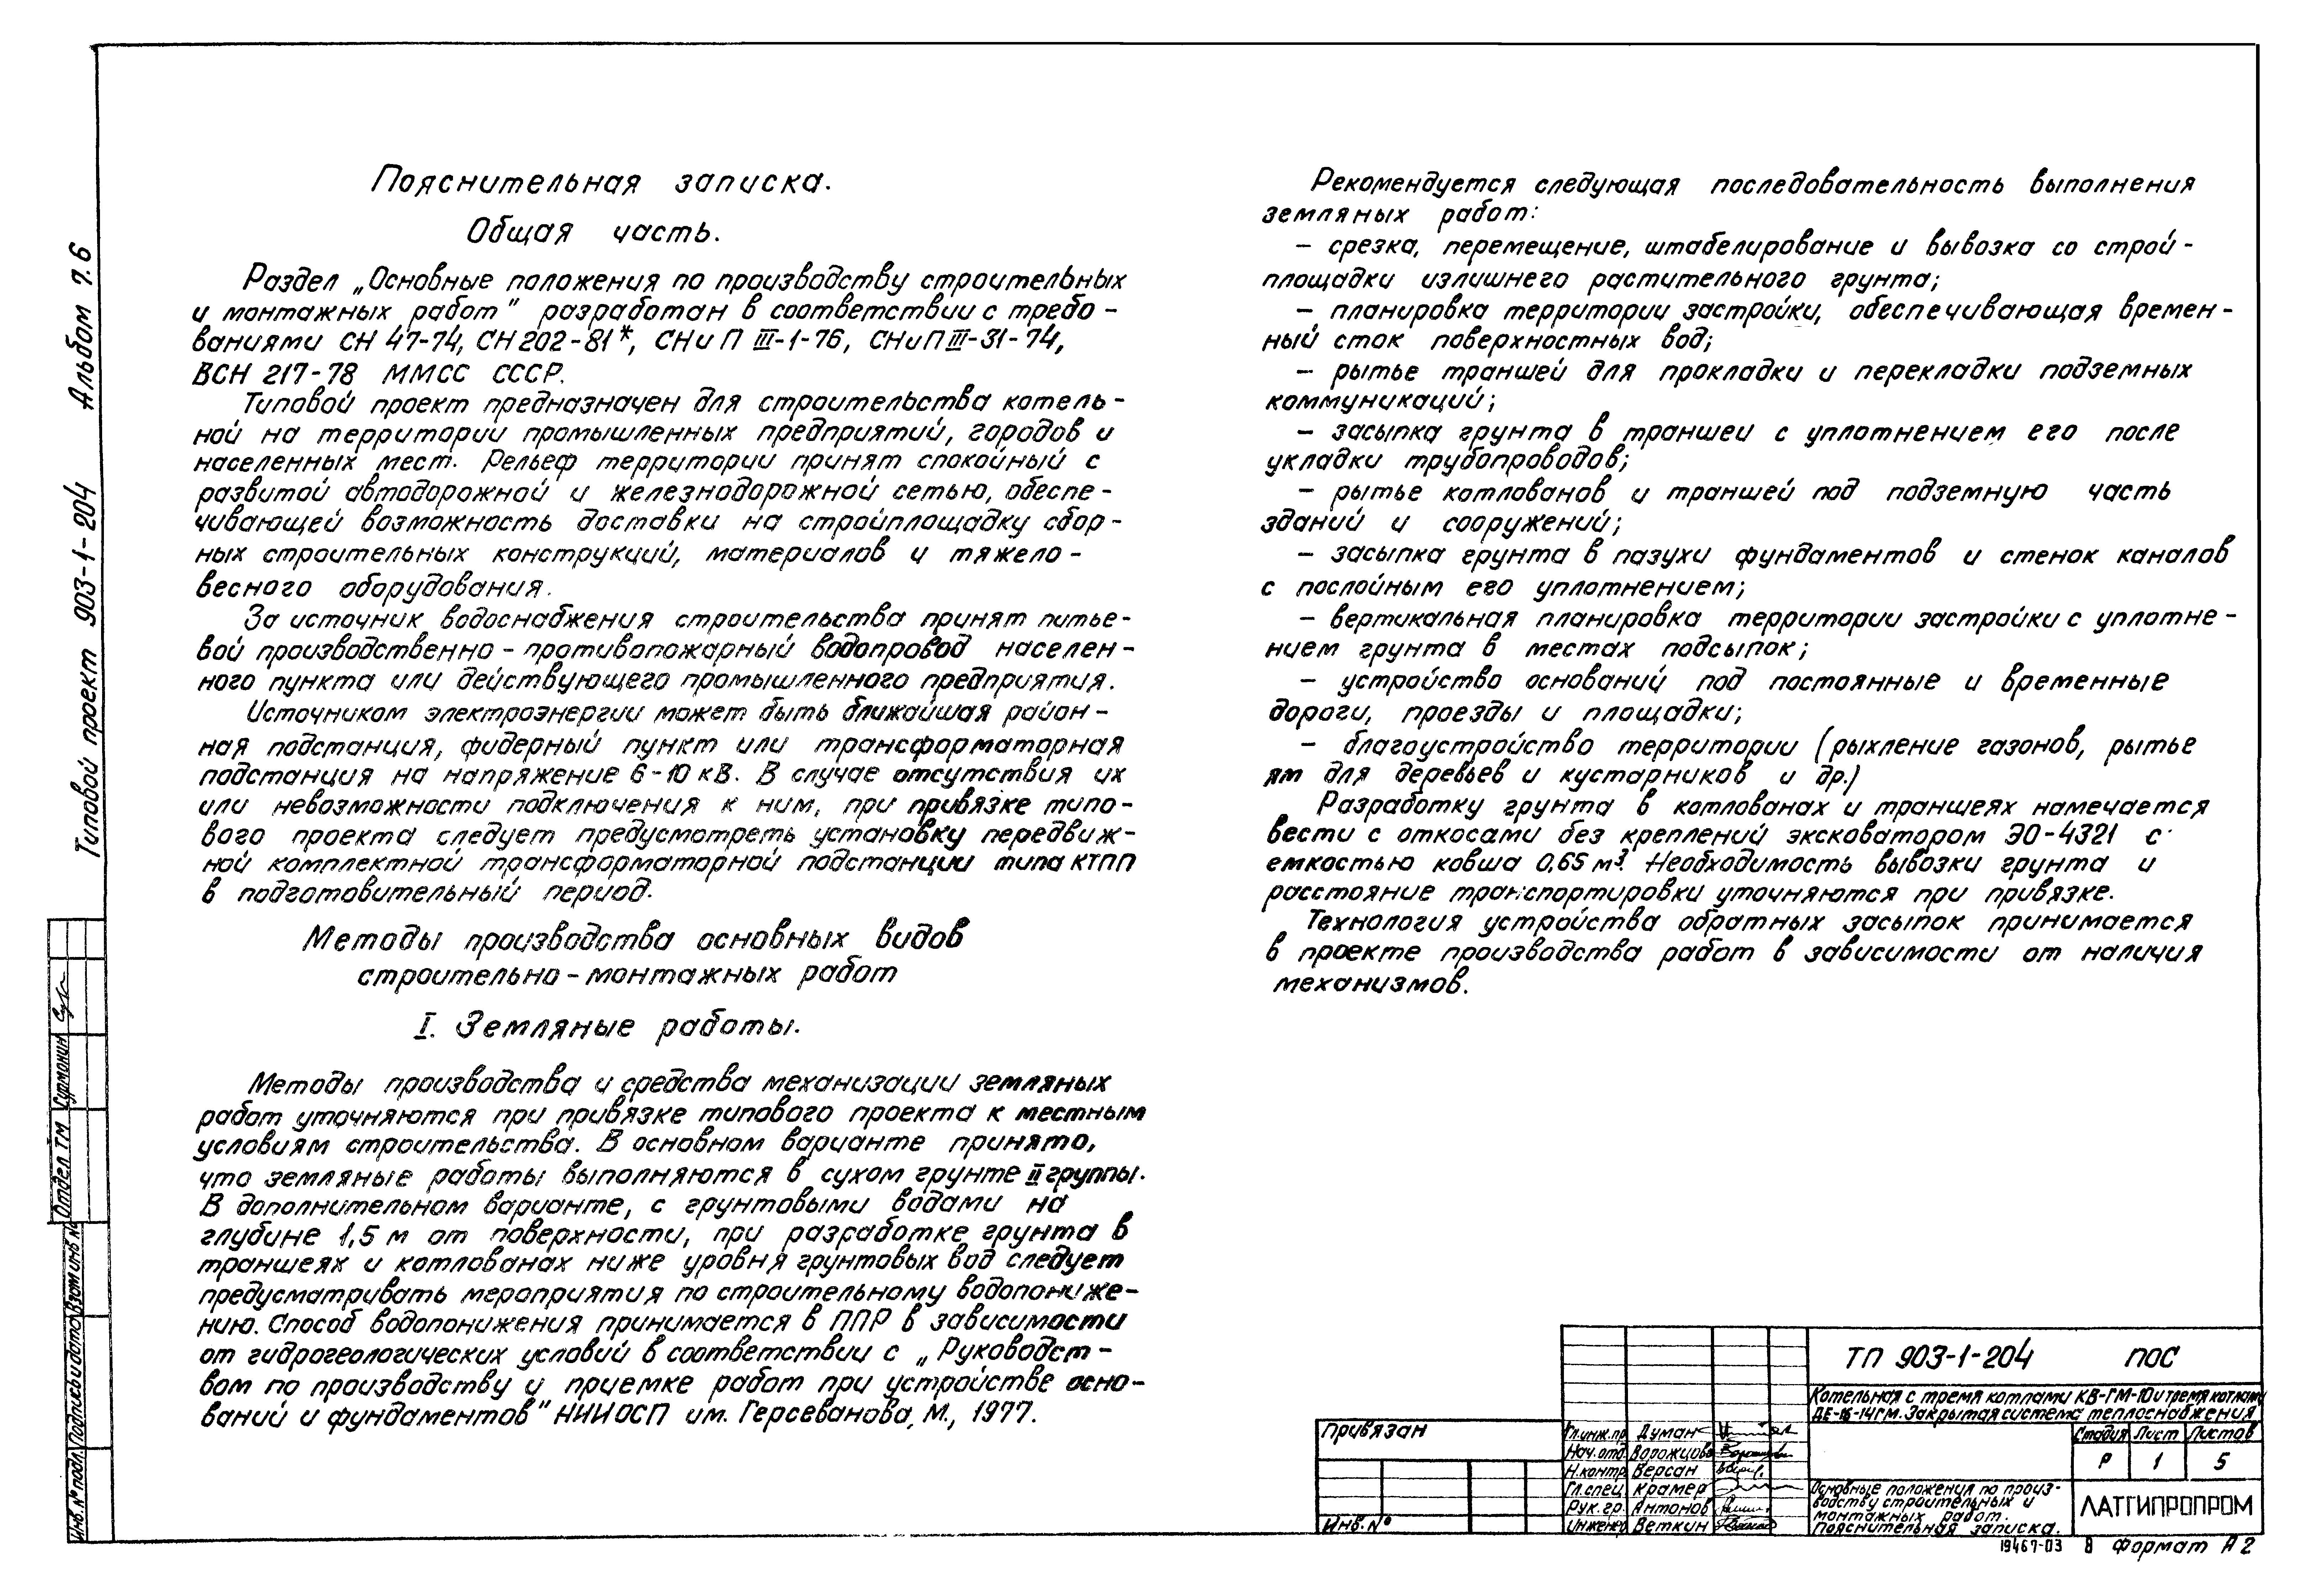 Пояснительная записка.
Общая часть.
Раздел „Основные положения по производству строительных
и монтажных работ" разработан в соответствии с требо-
ваниями СН 47-74, СН 202-81*, СНиП III-1-76, СНиП III-31-74,
ВСН 217-78 ММСС СССР.
Типовой проект предназначен для строительства котель-
ной на территории промышленных предприятий, городов и
населенных мест. Рельеф территории принят спокойный с
развитой автодорожной и железнодорожной сетью, обеспе-
чивающей возможность доставки на стройплощадку сбор-
ных строительных конструкций, материалов и тяжело-
весного оборудования.
За источник водоснабжения строительства принят питье-
вой производственно-противопожарный водопровод населен-
ного пункта или действующего промышленного предприятия.
Источником электроэнергии может быть ближайшая район-
ная подстанция, фидерный пункт или трансформаторная
подстанция на напряжение 6-10 кВ. В случае отсутствия их
или невозможности подключения к ним, при привязке типо-
вого проекта следует предусмотреть установку передвиж-
ной комплектной трансформаторной подстанции типа КТПП
в подготовительный период.
Методы производства основных видов
строительно-монтажных работ
I. Земляные работы.
Методы производства и средства механизации земляных
работ уточняются при привязке типового проекта к местным
условиям строительства. В основном варианте принято,
что земляные работы выполняются в сухом грунте II группы.
В дополнительном варианте, с грунтовыми водами на
глубине 1,5 м от поверхности, при разработке грунта в
траншеях и котлованах ниже уровня грунтовых вод следует
предусматривать мероприятия по строительному водопониже-
нию. Способ водопонижения принимается в ППР в зависимости
от гидрогеологических условий в соответствии с „Руководст-
вом по производству и приемке работ при устройстве осно-
ваний и фундаментов" НИИОСП им. Герсеванова, М., 1977.
Рекомендуется следующая последовательность выполнения
земляных работ:
- срезка, перемещение, штабелирование и вывозка со строй-
площадки излишнего растительного грунта;
- планировка территории застройки, обеспечивающая времен-
ный сток поверхностных вод;
- рытье траншей для прокладки и перекладки подземных
коммуникаций;
- засыпка грунта в траншеи с уплотнением его после
укладки трубопроводов;
- рытье котлованов и траншей под подземную часть
зданий и сооружений;
- засыпка грунта в пазухи фундаментов и стенок каналов
с послойным его уплотнением;
- вертикальная планировка территории застройки с уплотне-
нием грунта в местах подсыпок;
- устройство оснований под постоянные и временные
дороги, проезды и площадки;
- благоустройство территории (рыхление газонов, рытье
ям для деревьев и кустарников и др.)
Разработку грунта в котлованах и траншеях намечается
вести с откосами без креплений экскаватором ЭО-4321 с
емкостью ковша 0,65 м³. Необходимость вывозки грунта и
расстояние транспортировки уточняются при привязке.
Технология устройства обратных засыпок принимается
в проекте производства работ в зависимости от наличия
механизмов.
Типовой проект 903-1-204 Альбом 7.6
Отдел ТМ Сурмонин
Инв. № подл. Подпись и дата Взам инв №
Привязан
Инв. №
Гл.инж.пр Думан
Нач.отд. Ворожцова
Н.контр Версан
Гл.спец Крамер
Рук.гр. Антонов
Инженер Веткин
ТП 903-1-204 ПОС
Котельная с тремя котлами КВ-ГМ-10 и тремя котлами
ДЕ-16-14ГМ. Закрытая система теплоснабжения
Стадия Лист Листов
Р 1 5
Основные положения по произ-
водству строительных и
монтажных работ.
Пояснительная записка.
ЛАТГИПРОПРОМ
19467-03 8 Формат А2